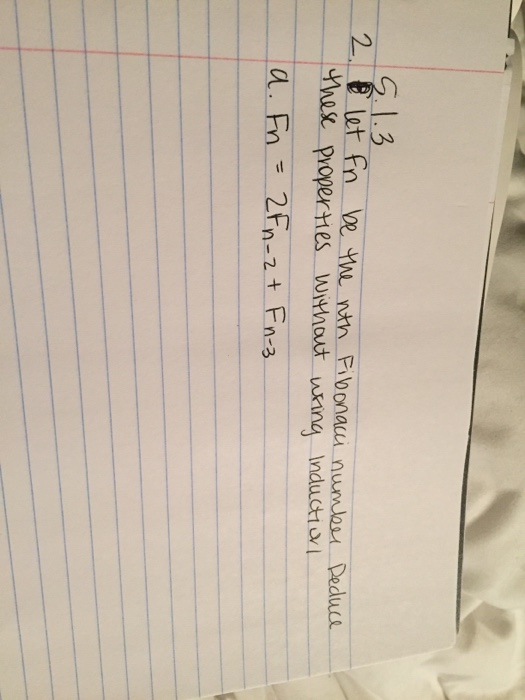 5.1.3
2. let fn be the nth Fibonacci number Deduce
these properties without using Induction
a. Fn = 2Fn-2 + Fn-3